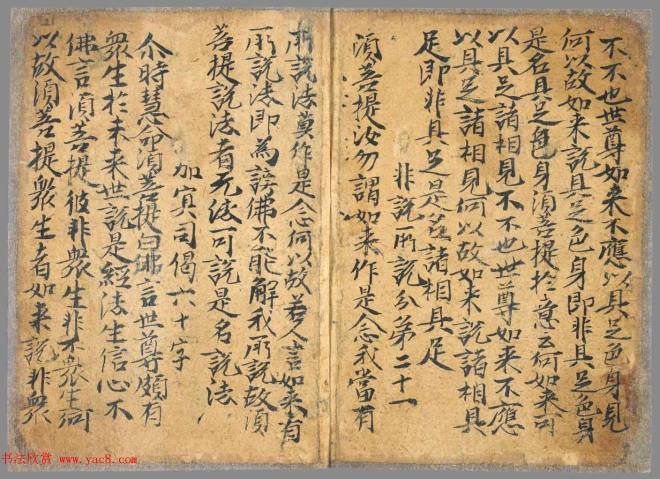 不不也世尊如来不應以具足色身見
何以故如来說具足色身即非具足色身
是名具足色身湏菩提扵意云何如来可
以具足諸相見不不也世尊如来不應
以具足諸相見何以故如来說諸相具
足即非具足是名諸相具足
非說所說分第二十一
湏菩提汝勿謂如来作是念我當有
所說法莫作是念何以故若人言如来有
所說法即為謗佛不能解我所說故湏
菩提說法者无法可說是名說法
加冥司偈六十字
尒時慧命湏菩提白佛言世尊頗有
衆生扵未来世說是經法生信心不
佛言湏菩提彼非衆生非不衆生何
以故湏菩提衆生者如来說非衆
书法欣赏 www.yac8.com